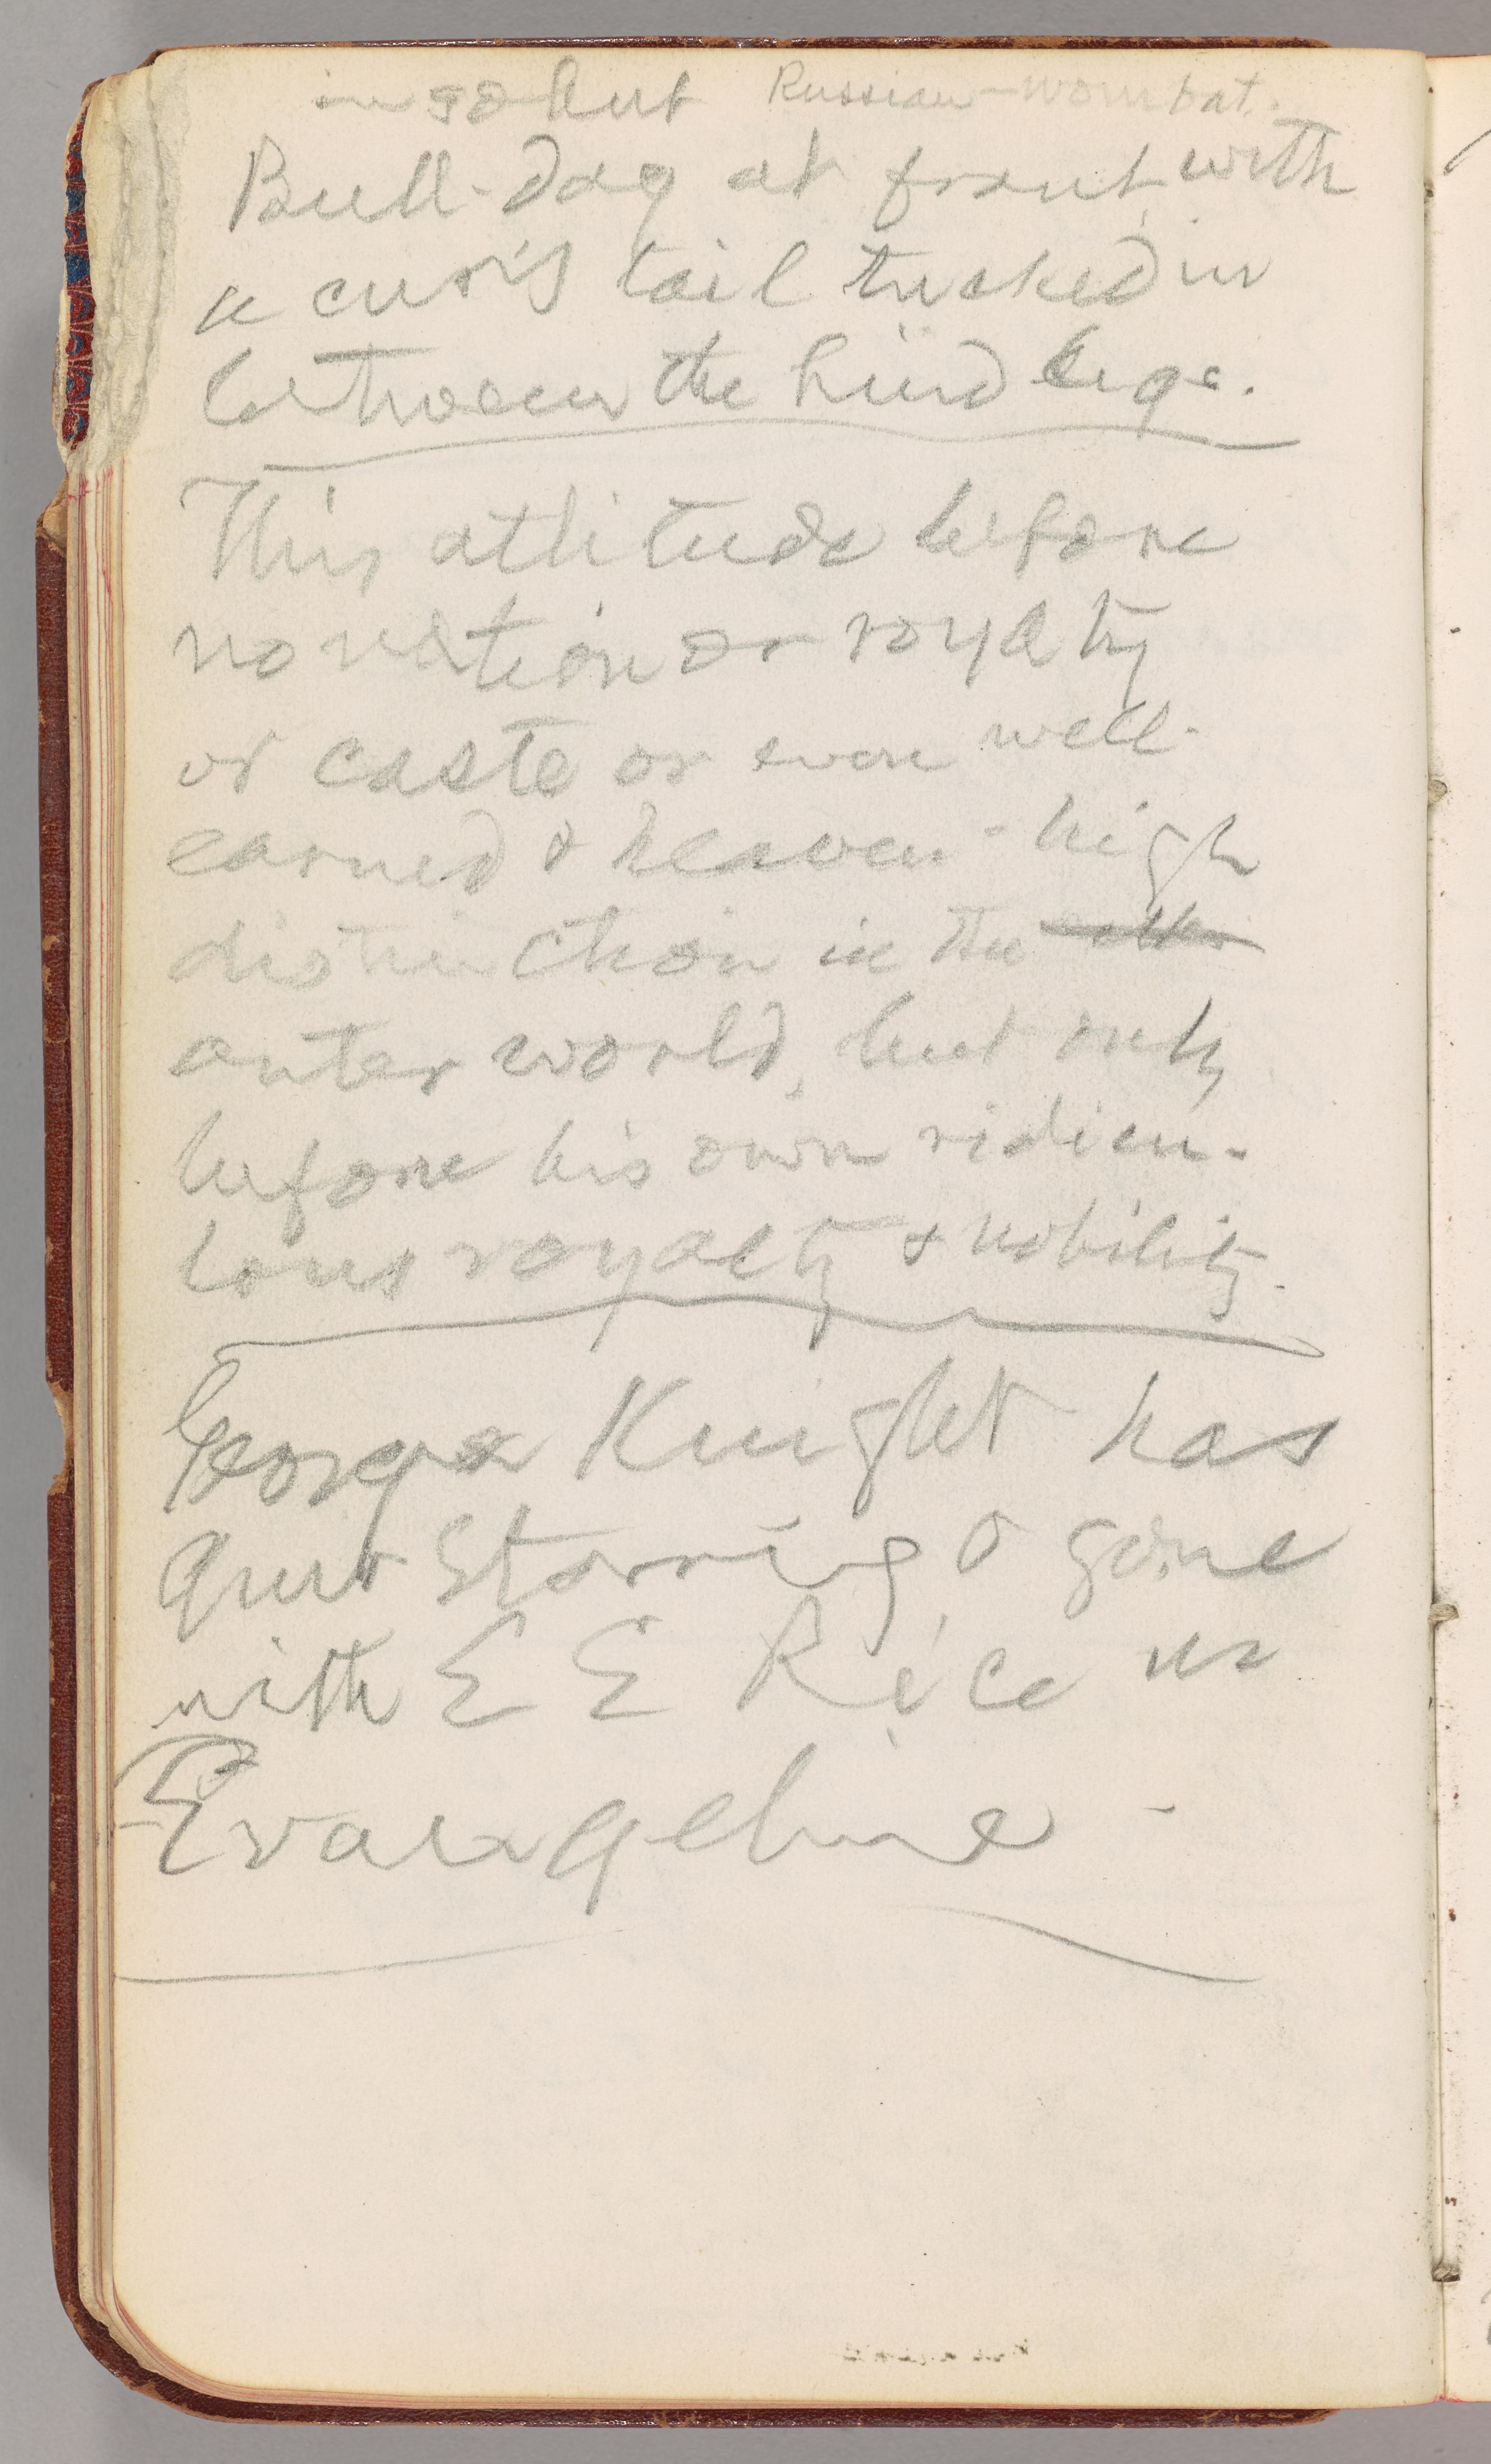 in so but Russian-wombat.
Bull-dog at front, with
a cur's tail tucked in
between the hind legs.
This attitude before
no nation or royalty
or caste or even well-
earned & heaven-high
distinction in the
outer world, but only
before his own ridicu-
lous royalty & nobility.
George Knight has
quit starring & gone
with E E Rice in
Evangeline -